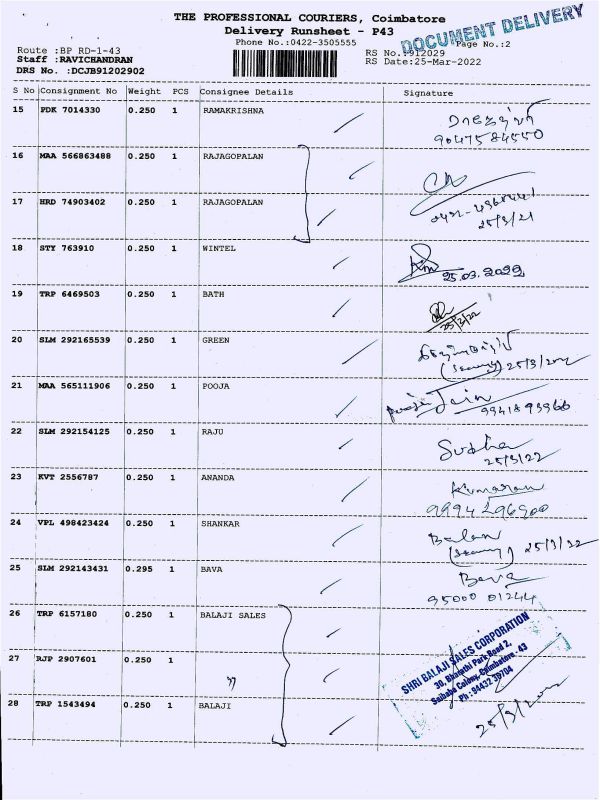 THE PROFESSIONAL COURIERS, Coimbatore
Delivery Runsheet - P43
DOCUMENT DELIVERY
Phone No.:0422-3505555
Page No.:2
Route :BP RD-1-43
RS No.:912029
Staff :RAVICHANDRAN
RS Date:25-Mar-2022
DRS No. :DCJB91202902
S No Consignment No Weight PCS Consignee Details Signature
15 PDK 7014330 0.250 1 RAMAKRISHNA
9047584550
16 MAA 566863488 0.250 1 RAJAGOPALAN
17 HRD 74903402 0.250 1 RAJAGOPALAN
25/3/21
18 STY 763910 0.250 1 WINTEL
25.03.2022
19 TRP 6469503 0.250 1 BATH
25/3/22
20 SLM 292165539 0.250 1 GREEN
25/3/2022
21 MAA 565111906 0.250 1 POOJA
Pooja Jain
22 SLM 292154125 0.250 1 RAJU
Sudha
25/3/22
23 KVT 2556787 0.250 1 ANANDA
Kumaran
9994296900
24 VPL 498423424 0.250 1 SHANKAR
Balan
25/3/22
25 SLM 292143431 0.295 1 BAVA
Bava
95000 01244
26 TRP 6157180 0.250 1 BALAJI SALES
27 RJP 2907601 0.250 1
"
28 TRP 1543494 0.250 1 BALAJI
SHRI BALAJI SALES CORPORATION
30, Bharathi Park Road 2,
Saibaba Colony, Coimbatore - 43
Ph : 94432 39704
25/3/2022